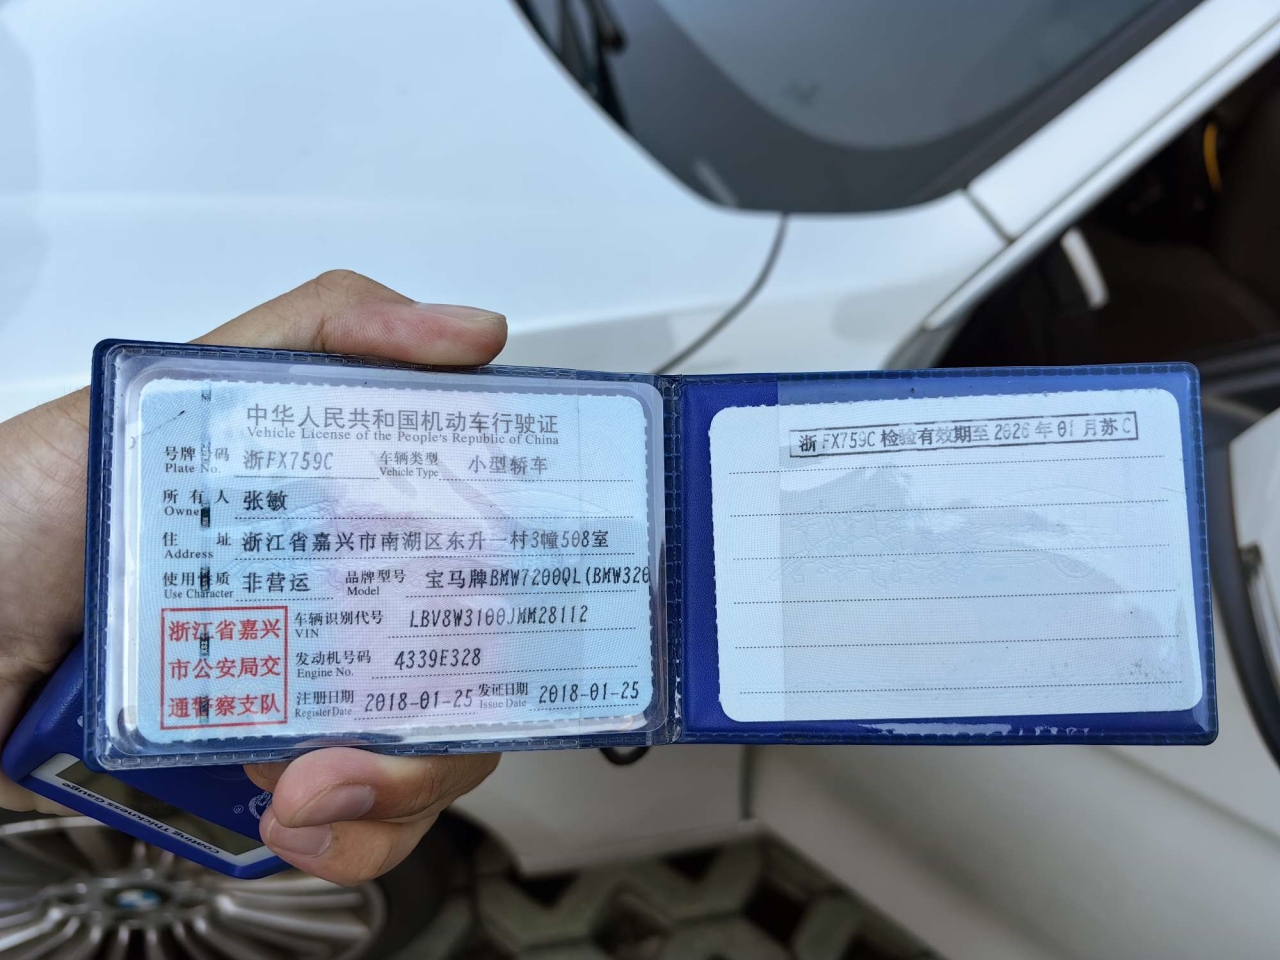 中华人民共和国机动车行驶证
Vehicle License of the People's Republic of China
号牌号码 浙FX759C 车辆类型 小型轿车
Plate No. Vehicle Type
所有人 张敏
Owner
住址 浙江省嘉兴市南湖区东升一村3幢508室
Address
使用性质 非营运 品牌型号 宝马牌BMW7200QL(BMW320
Use Character Model
浙江省嘉兴
市公安局交
通警察支队
车辆识别代号 LBV8W3100JMM28112
VIN
发动机号码 4339E328
Engine No.
注册日期 2018-01-25 发证日期 2018-01-25
Register Date Issue Date
浙FX759C 检验有效期至 2026 年 01 月苏C
Coating Thickness Gauge